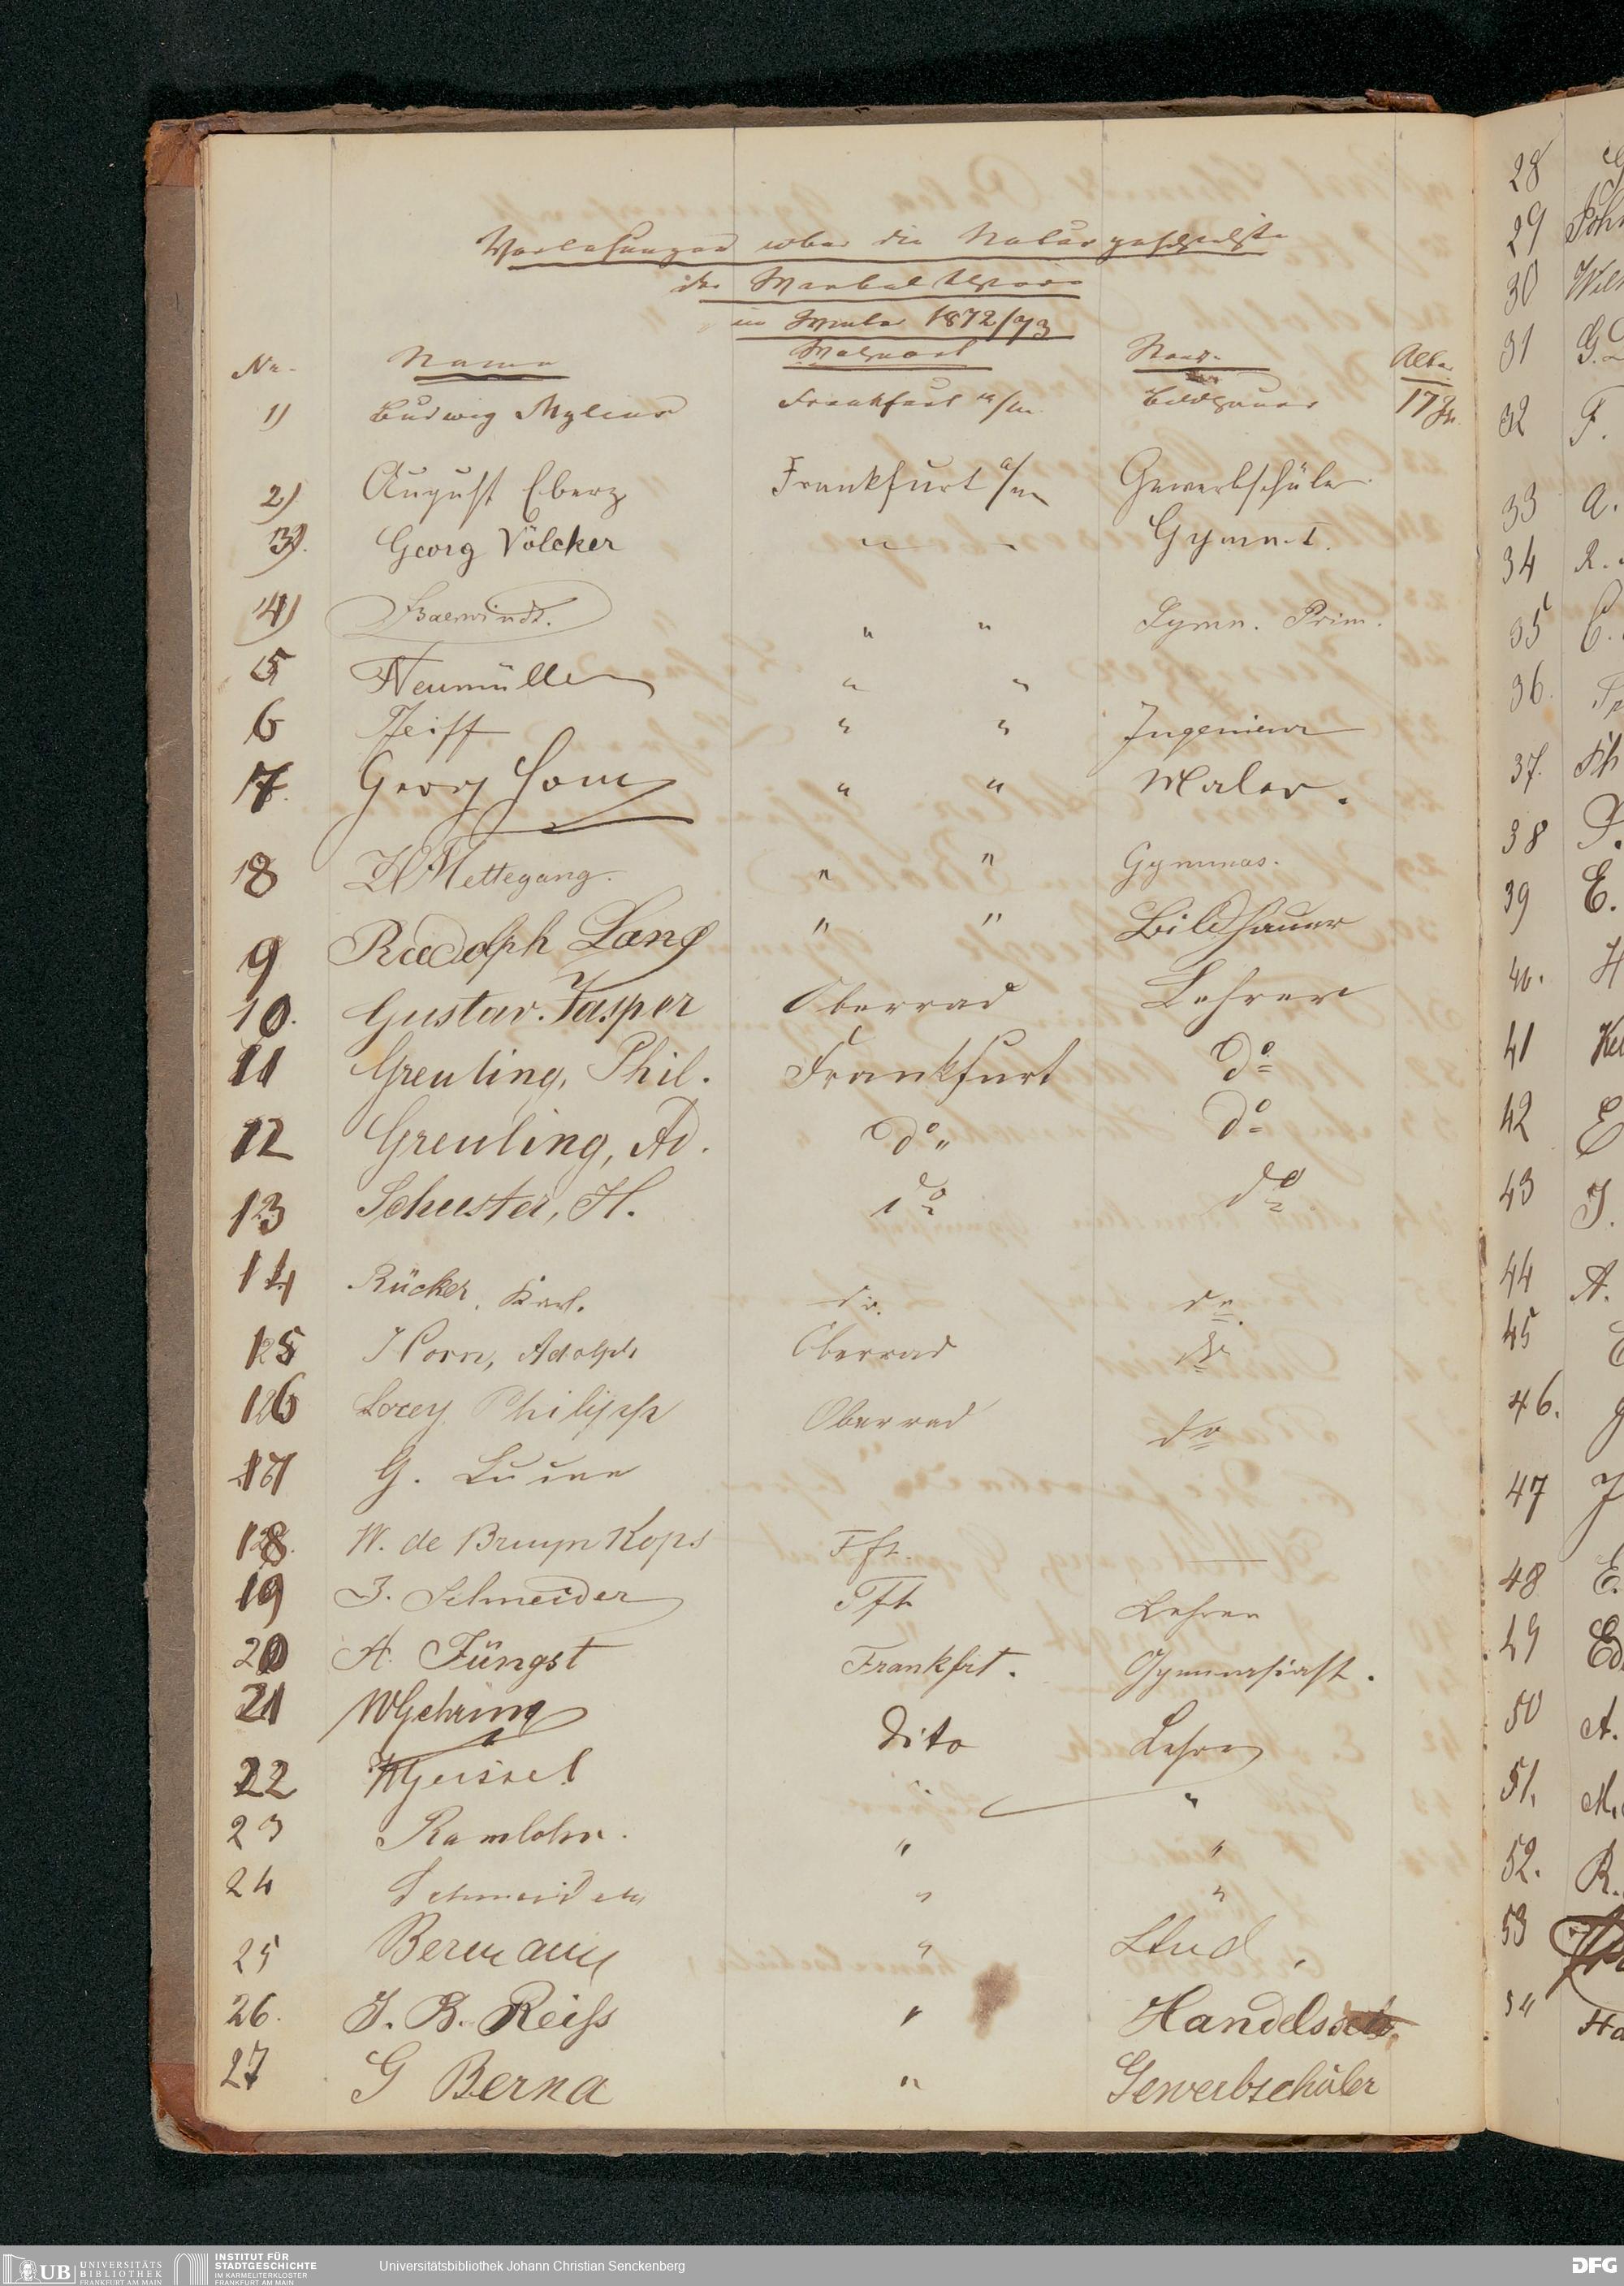 Vorlesungen über die Naturgeschichte
der Wirbelthiere
im Winter 1872/73
No. Name Wohnort Stand Alter
1) Ludwig Mylius Frankfurt a/m. Bildhauer 17 J.
2) August Eberz Frankfurt a/m Gewerbschüler
3). Georg Völcker " " Gymn-t.
4) Baerwindt. " " Gymn. Prim.
5 Neumüller " "
6 Pfeiff " " Ingenieur
7. Georg " " Maler.
8 Mettegang. " " Gymnas.
9 Rudolph Lang " " Bildhauer
10. Gustav Jasper Oberrad Lehrer
11 Greuling, Phil. Frankfurt do
12 Greuling, Ad. do " do
13 Schuster, H. do do
14 Rücker, Karl. do. do.
15 Horn, Adolph Oberrad do
16 Locey Philipp Oberrad do
17 G.
18. W. de Bruyn Kops Fft. —
19 J. Schneider Fft. Lehrer
20 A. Jüngst Frankfrt. Gymnasiast.
21 W Gehring Dito Lehrer
22 Geissel " "
23 Ramlohr. " "
24 Schneider " "
25 Bermann " Stud.
26. J. B. Reiss " Handelssch.
27 G Berna " Gewerbschüler
28
29
30
31
32 F.
33 A.
34 R.
35 C.
36.
37.
38
39 E.
40. H
41
42 E
43 J.
44 A.
45
46.
47 J
48 E.
49 Ed
50 A.
51. M.
52. R.
53
54
UB UNIVERSITÄTS
BIBLIOTHEK
FRANKFURT AM MAIN
INSTITUT FÜR
STADTGESCHICHTE
IM KARMELITERKLOSTER
FRANKFURT AM MAIN
Universitätsbibliothek Johann Christian Senckenberg
DFG